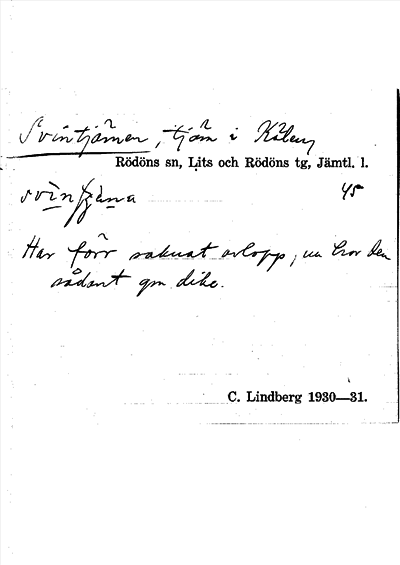 Svintjärnen, tjärn i Kälen
Rödöns sn, Lits och Rödöns tg, Jämtl. l.
45
Har förr saknat avlopp, nu har den
sådant gm dike.
C. Lindberg 1930—31.